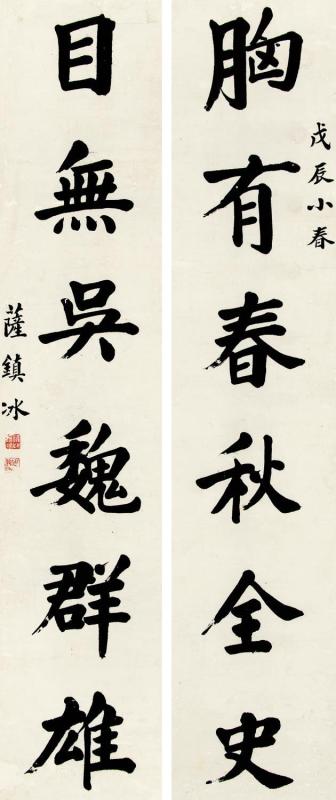 戊辰小春
胸有春秋全史
目無吳魏群雄
薩鎮冰